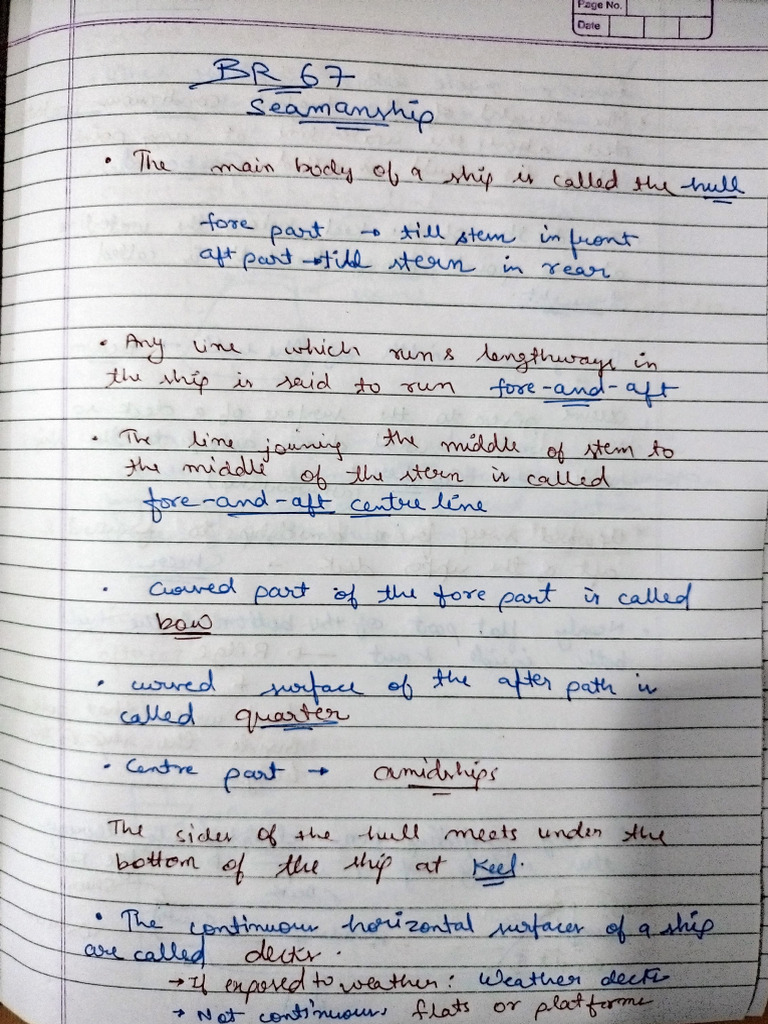 Page No.
Date
BR 67
Seamanship
• The main body of a ship is called the hull
fore part → till stem in front
aft part → till stern in rear
• Any line which runs lengthways in
the ship is said to run fore-and-aft
• The line joining the middle of stem to
the middle of the stern is called
fore-and-aft centre line
• Curved part of the fore part is called
bow
• curved surface of the after path is
called quarter
• Centre part → amidships
The sides of the hull meets under the
bottom of the ship at Keel.
• The continuous horizontal surfaces of a ship
are called decks.
→ If exposed to weather: Weather decks
→ Not continuous flats or platforms